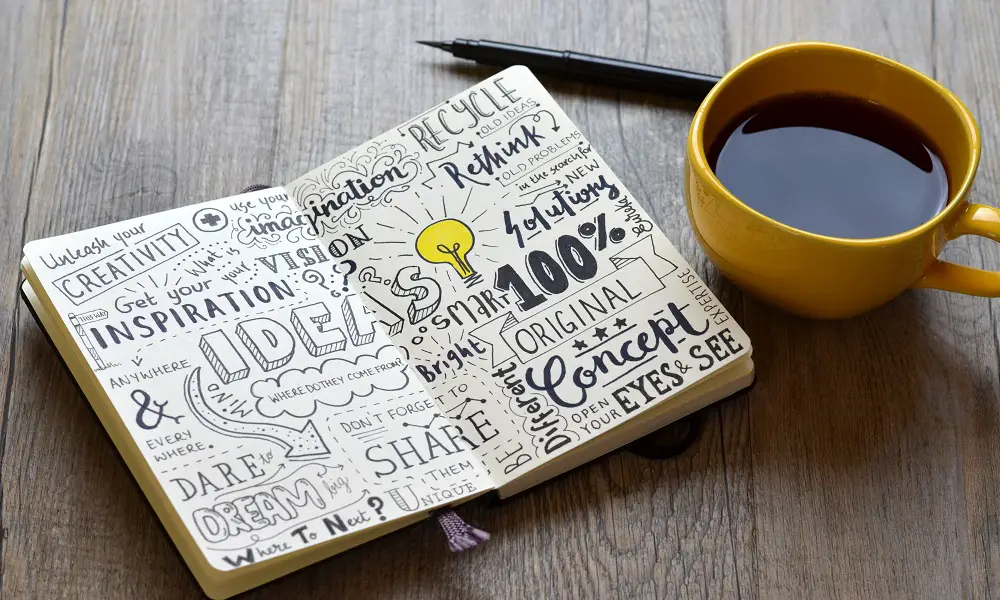 Unleash your
CREATIVITY
use your
imagination
What is
your
VISION
?
Get your
INSPIRATION
THIS WAY
IDEAS
MIND
WHERE DO THEY COME FROM?
ANYWHERE
&
EVERY
WHERE.
DON'T FORGET TO
SHARE
THEM
DARE to
DREAM big
Where To Next?
UNIQUE
RECYCLE
OLD IDEAS
Rethink
OLD PROBLEMS
in the search for
NEW
Solutions
SMART
100%
Bright
ORIGINAL
Concept
EXPERTISE
BE
Different
OPEN
YOUR
EYES & SEE